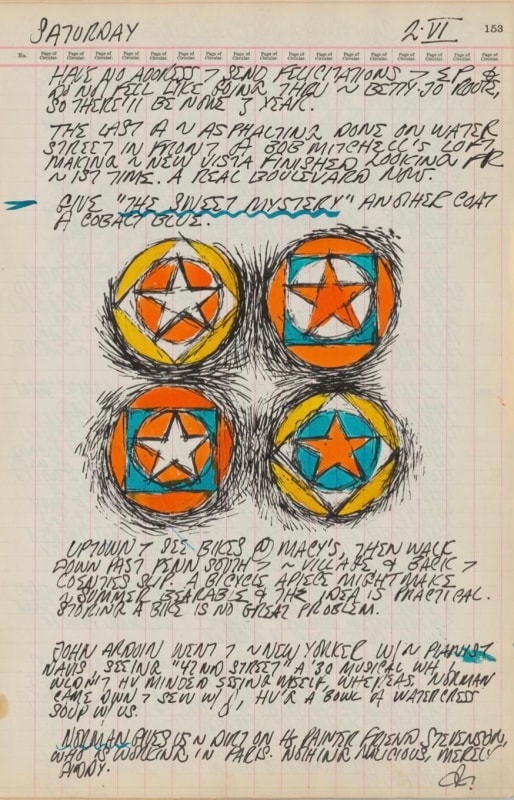 SATURDAY 2·VI 153
No. Page of Circular. Page of Circular. Page of Circular. Page of Circular. Page of Circular. Page of Circular. Page of Circular. Page of Circular. Page of Circular. Page of Circular. Page of Circular. Page of Circular. Page of Circular. Page of Circular. Page of Circular. Page of Circular. Page of Circular.
HAVE NO ADDRESS SEND FELICITATIONS &
DO NOT FEEL LIKE GOING THRU ~ BETTY-JO ROUTE,
SO THERE'LL BE NONE YEAR.
THE LAST ~ ASPHALTING DONE ON WATER
STREET IN FRONT BOB MITCHELL'S LOFT
MAKING ~ NEW VISTA FINISHED LOOKING FR
~ 1ST TIME. A REAL BOULEVARD NOW.
GIVE "THE SWEET MYSTERY" ANOTHER COAT
COBALT BLUE.
UPTOWN SEE BIKES @ MACY'S, THEN WALK
DOWN PAST PENN SOUTH ~ VILLAGE & BACK
COENTIES SLIP. A BICYCLE APIECE MIGHT MAKE
~ SUMMER BEARABLE & THE IDEA IS PRACTICAL.
STORING A BIKE IS NO GREAT PROBLEM.
JOHN ARDOIN WENT ~ NEW YORKER W/ ~ PIANIST
SEEING "42ND STREET" A '30 MUSICAL WH I
WLDN'T HV MINDED SEEING MYSELF WHEREAS NORMAN
CAME DWN SEW W/ HV'R A BOWL WATERCRESS
SOUP W/ US.
NORMAN GIVES US ~ DIRT ON HS PAINTER FRIEND STEVENSON,
WHO IS WORKING IN PARIS. NOTHING MALICIOUS, MERELY